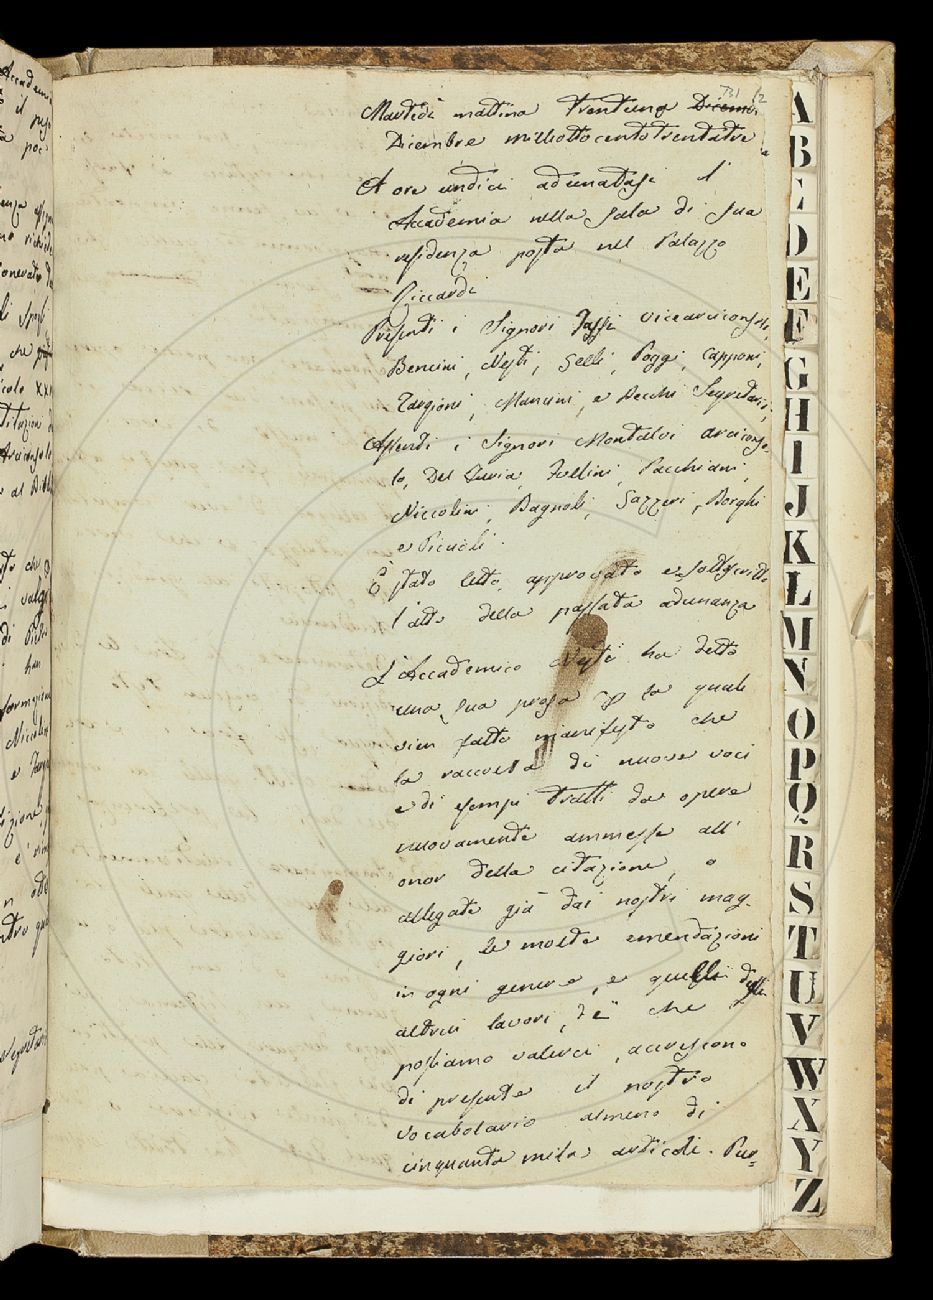 Martedì mattina trentuno Dicem.
Dicembre milleottocentotrentatre
A ore undici adunatasi l'
Accademia nella sala di sua
residenza posta nel Palazzo
Riccardi
Presenti i Signori Tassi vicearciconsolo,
Bencini, Nesti, Gelli, Poggi, Capponi,
Targioni, Mancini, e Becchi Segretario;
Assenti i Signori Montalvi arciconso-
lo, Del Furia, Follini, Pacchiani,
Niccolini, Bagnoli, Gazzeri, Borghi
e Piccioli.
È stato letto, approvato e sottoscritto
l'atto della passata adunanza
L'Accademico Nesti ha detto
una sua prosa p la quale
vien fatto manifesto che
la raccolta di nuove voci
e di esempi tratti da opere
nuovamente ammesse all'
onor della citazione, o
allegate già dai nostri mag-
giori, le molte emendazioni
in ogni genere, e quelli degli
altrui lavori, di che
possiamo valerci, accrescono
di presente il nostro
vocabolario almeno di
cinquanta mila articoli. Pur-
A
B
C
D
E
F
G
H
I
J
K
L
M
N
O
P
Q
R
S
T
U
V
W
X
Y
Z